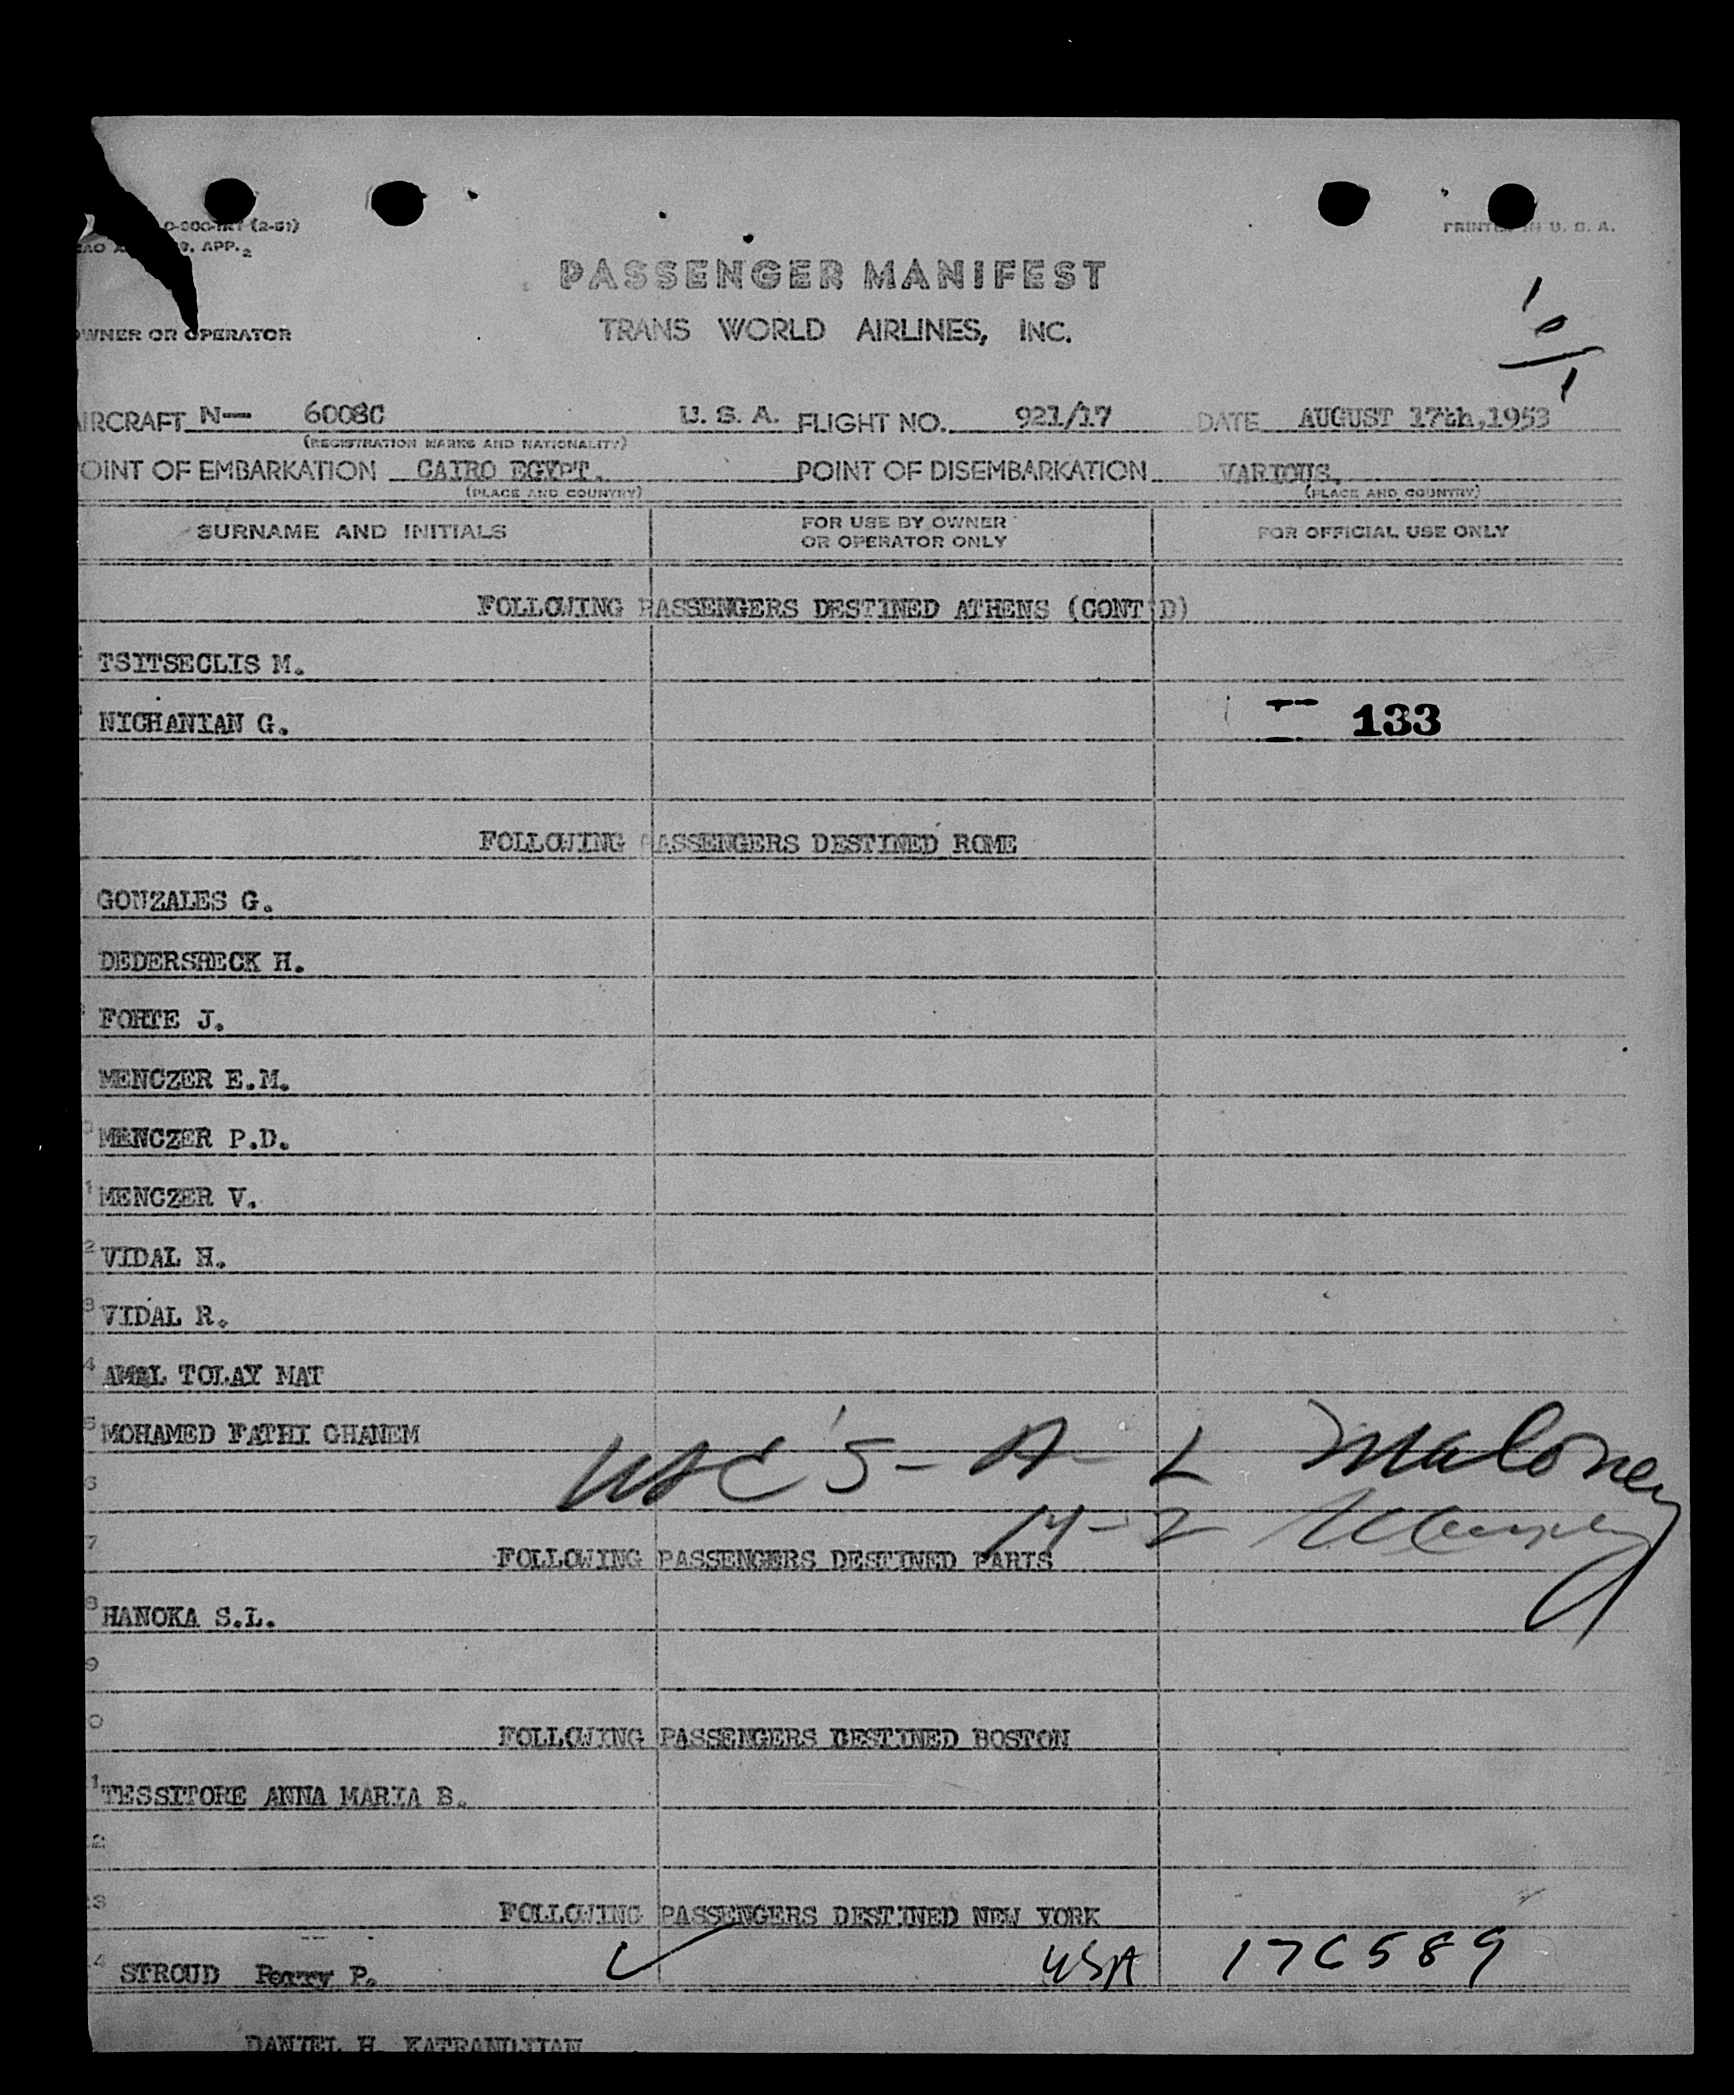 0-300-INT (2-51)
9, APP. 2
PRINTED IN U. S. A.
PASSENGER MANIFEST
OWNER OR OPERATOR
TRANS WORLD AIRLINES, INC.
10/1
AIRCRAFT N— 6008C U. S. A. FLIGHT NO. 921/17 DATE AUGUST 17th,1953
(REGISTRATION MARKS AND NATIONALITY)
POINT OF EMBARKATION CAIRO EGYPT. POINT OF DISEMBARKATION VARIOUS.
(PLACE AND COUNTRY) (PLACE AND COUNTRY)
SURNAME AND INITIALS FOR USE BY OWNER OR OPERATOR ONLY FOR OFFICIAL USE ONLY
FOLLOWING PASSENGERS DESTINED ATHENS (CONT'D)
TSITSECLIS M.
NICHANIAN G. 133
FOLLOWING PASSENGERS DESTINED ROME
GONZALES G.
DEDERSHECK H.
FORTE J.
MENCZER E.M.
MENCZER P.D.
1 MENCZER V.
2 VIDAL H.
3 VIDAL R.
4 AMAL TOLAY MAT
5 MOHAMED FATHI GHANEM
USC'S - A - L Maloney
6
M-2
7 FOLLOWING PASSENGERS DESTINED PARIS
8 HANOKA S.L.
9
0 FOLLOWING PASSENGERS DESTINED BOSTON
1 TESSITORE ANNA MARIA B.
2
3 FOLLOWING PASSENGERS DESTINED NEW YORK
4 STROUD Perry P. USA 176589
DANIEL H. KATRANDJIAN